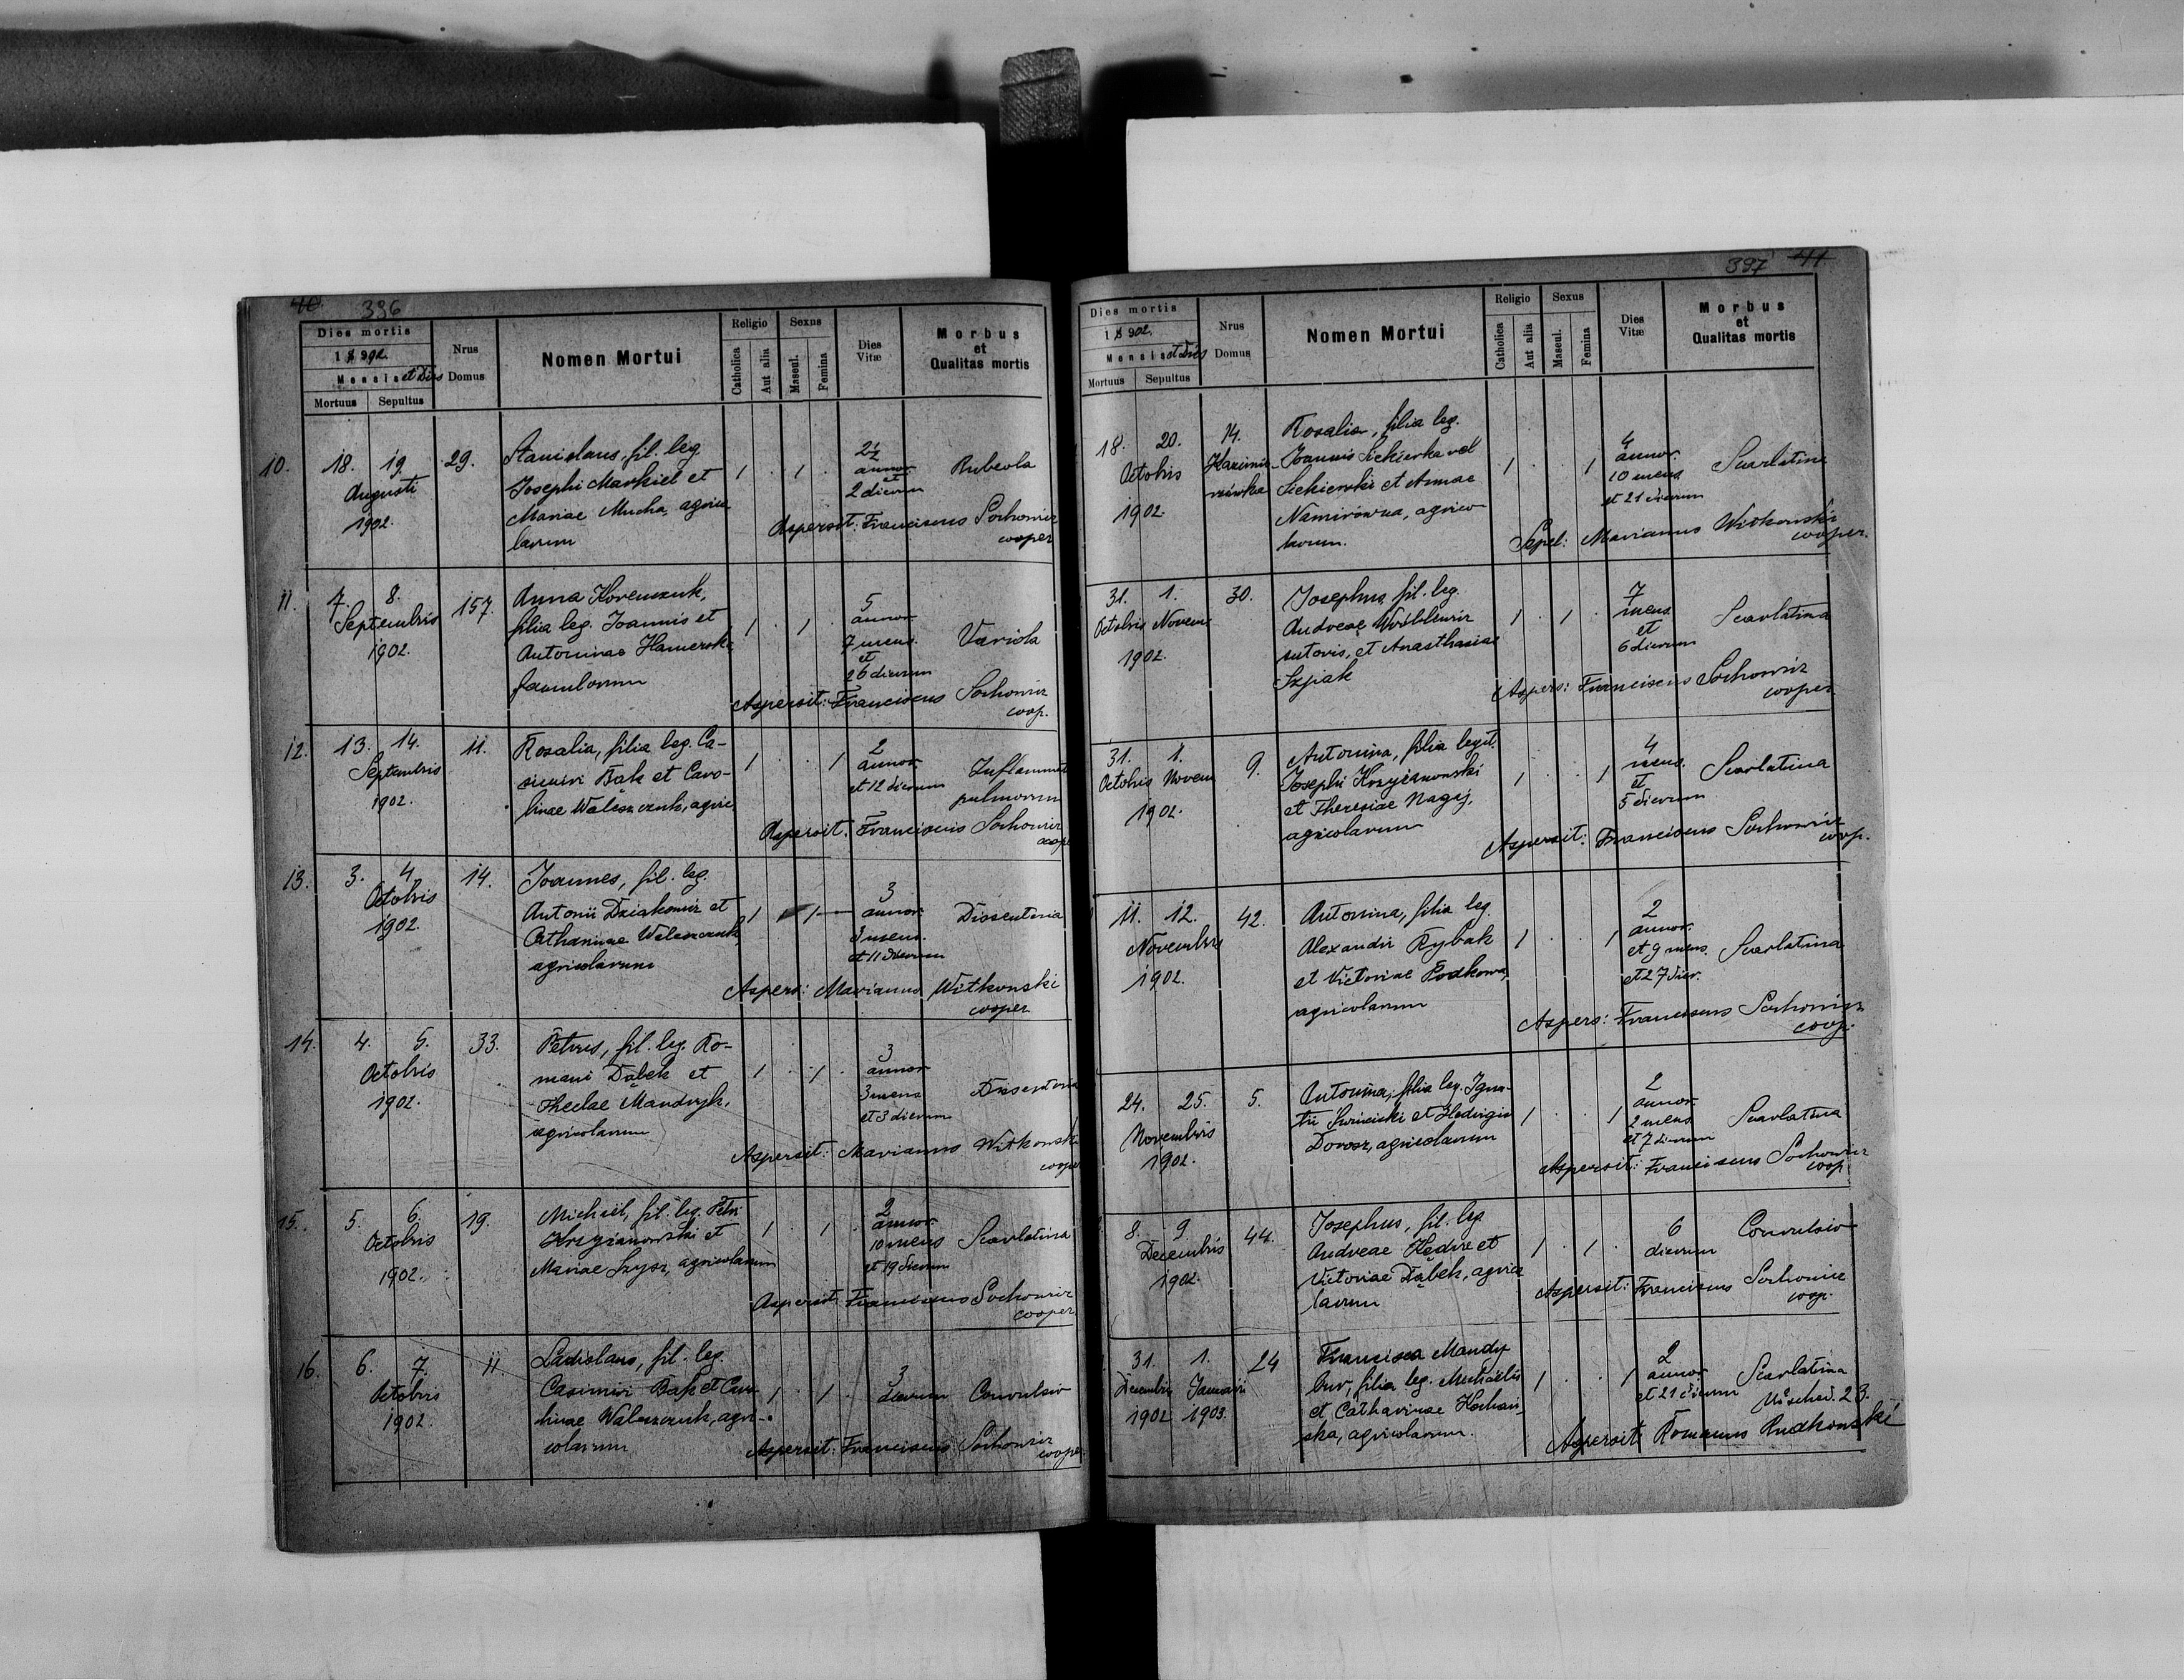 40. 396
Dies mortis
18902.
Mensis et Dies
Mortuus Sepultus
Nrus Domus
Nomen Mortui
Religio
Catholica Aut alia
Sexus
Mascul. Femina
Dies Vitæ
Morbus
et
Qualitas mortis
10. 18. 19. 29.
Augusti
1902.
Stanislaus, fil. leg.
Josephi Markiel et
Mariae Mucha, agrico
larum
1 . 1 .
annor.
et
2 dierum
Rubeola
Aspersit: Franciscus Sochowicz
cooper
11. 7. 8. 157.
Septembris
1902.
Anna Korenczuk,
filia leg. Joannis et
Antoninae Hamerska
famulorum
1 . 1 .
5
annor.
7 mens.
et
26 dierum
Variola
Aspersit: Franciscus Sochowicz
coop.
12. 13. 14. 11.
Septembris
1902.
Rosalia, filia leg. Ca-
simiri Bąk et Caro-
linae Waleszczuk, agric
1 . . 1
2
annor.
et 12 dierum
Inflammat
pulmorum
Aspersit: Franciscus Sochowicz
coop
13. 3. 4. 14.
Octobris
1902.
Joannes, fil. leg.
Antonii Dziakowicz et
Catharinae Waleszczuk
agricolarum
1 1
3
annor.
3 mens.
et 11 dierum
Dissenteria
Aspers: Marianus Witkowski
cooper
14. 4. 5. 33.
Octobris
1902.
Petrus, fil. leg. Ro-
mani Dąbek et
Theclae Mandryk,
agricolarum
1 . 1 .
3
annor.
3 mens
et 3 dierum
Dissenteria
Aspersit: Marianus Witkowski
cooper
15. 5. 6. 19.
Octobris
1902.
Michael, fil. leg. Petri
Krzyżanowski et
Mariae Szysz, agricolarum
1 1 .
2
annor.
10 mens
et 19 dierum
Scarlatina
Aspersit Franciscus Sochowicz
cooper
16. 6. 7. 11
Octobris
1902.
Ladislaus, fil. leg.
Casimiri Bąk et Caro
linae Waleszczuk, agri-
colarum
1 . 1 .
3
dierum
Convulsio
Aspersit: Franciscus Sochowicz
cooper
397 41
Dies mortis
18902.
Mensis et Dies
Mortuus Sepultus
Nrus
Domus
Nomen Mortui
Religio
Catholica Aut alia
Sexus
Mascul. Femina
Dies
Vitæ
Morbus
et
Qualitas mortis
18. 20. 14.
Octobris
1902.
Rosalia, filia leg.
Joannis Siekierka vel
Siekierski et Annae
Namirówna, agrico
larum.
1 . . 1
4
annor.
10 mens
et 21 dierum
Scarlatina
Sepel: Marianus Witkowski
cooper.
31. 1. 30.
Octobris Novem
1902.
Josephus, fil. leg.
Andreae Wróblewicz
sutoris, et Anasthasiae
Szpak
1 . 1 .
7
mens.
et
6 dierum
Scarlatina
Aspers: Franciscus Sochowicz
cooper
31. 1. 9.
Octobris Novem
1902.
Antonina, filia legit.
Josephi Krzyżanowski
et Theresiae Nagaj,
agricolarum
1 . . 1
4
mens.
et
5 dierum
Scarlatina
Aspersit: Franciscus Sochowicz
coop.
11. 12. 42.
Novembris
1902.
Antonina, filia leg.
Alexandri Rybak
et Victoriae Podkowa,
agricolarum
1 . . 1
2
annor.
et 9 mens.
et 27 dier.
Scarlatina
Aspers: Franciscus Sochowicz
coop.
24. 25. 5.
Novembris
1902.
Antonina, filia leg. Igna-
tii et Hedvigis
Dorosz, agricolarum
1 . . 1
2
annor.
2 mens
et 7 dierum
Scarlatina
Aspersit: Franciscus Sochowicz
coop
8. 9. 44.
Decembris
1902.
Josephus, fil. leg.
Andreae et
Victoriae Dąbek, agrico
larum
1 . 1 .
6
dierum
Convulsio
Aspersit: Franciscus Sochowicz
coop.
31. 1. 24
Decembris Januarii
1902 1903.
Francisca Mandy
filia leg. Michaelis
et Catharinae Kochań-
ska, agricolarum.
1 . . 1
2
annor.
et 21 dierum
Scarlatina
23.
Aspersit Romanus Rudkowski